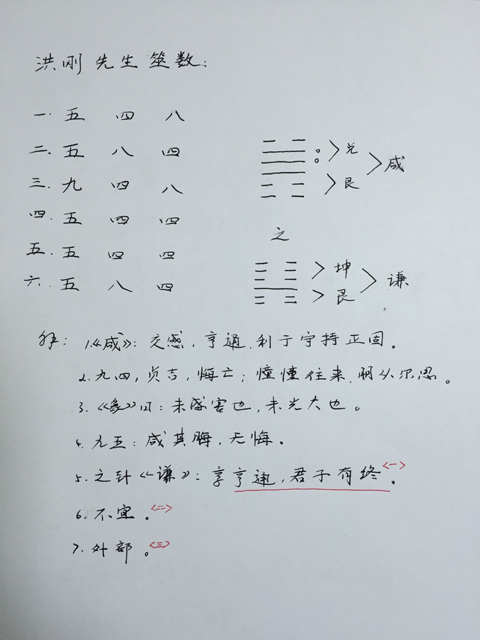 洪刚先生筮数：
一. 五 四 八
二. 五 八 四
三. 九 四 八
四. 五 四 四
五. 五 四 四
六. 五 八 四
兑
艮
咸
之
坤
艮
谦
解：1.《咸》：交感，亨通，利于守持正固。
2. 九四，贞吉，悔亡；憧憧往来，朋从尔思。
3.《象》曰：未感害也，未光大也。
4. 九五：咸其脢，无悔。
5. 之卦《谦》：享亨通，君子有终<一>。
6. 不宜。<二>
7. 外部。<三>